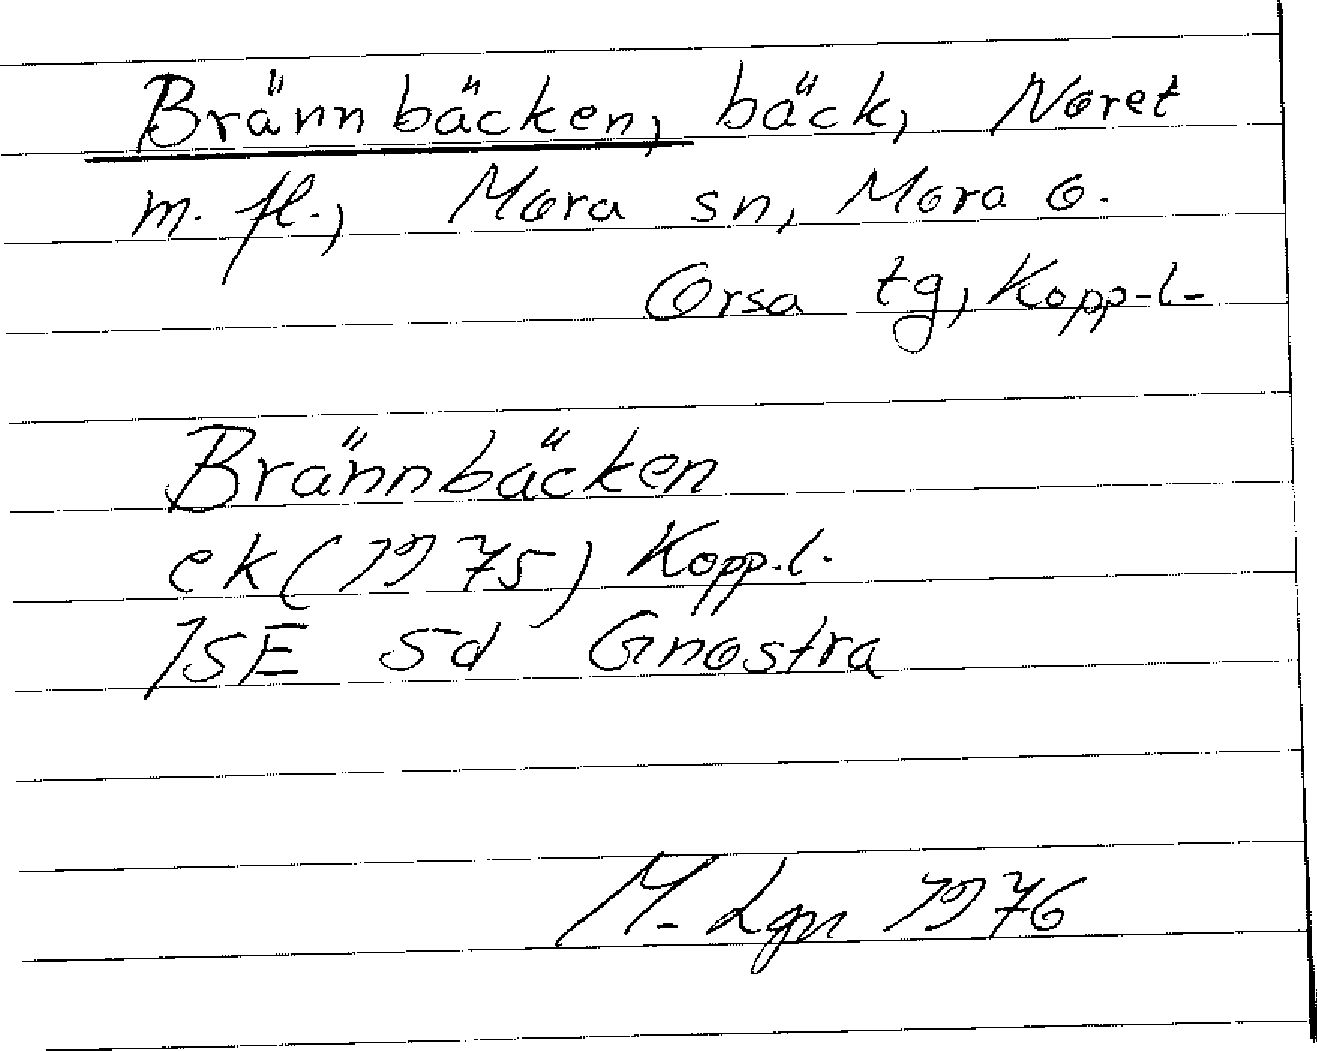 Brännbäcken, bäck, Noret
m. fl., Mora sn, Mora o.
Orsa tg, Kopp.l.
Brännbäcken
ek (1975) Kopp.l.
JSE Sd Gnostra
M. Lgn 1976